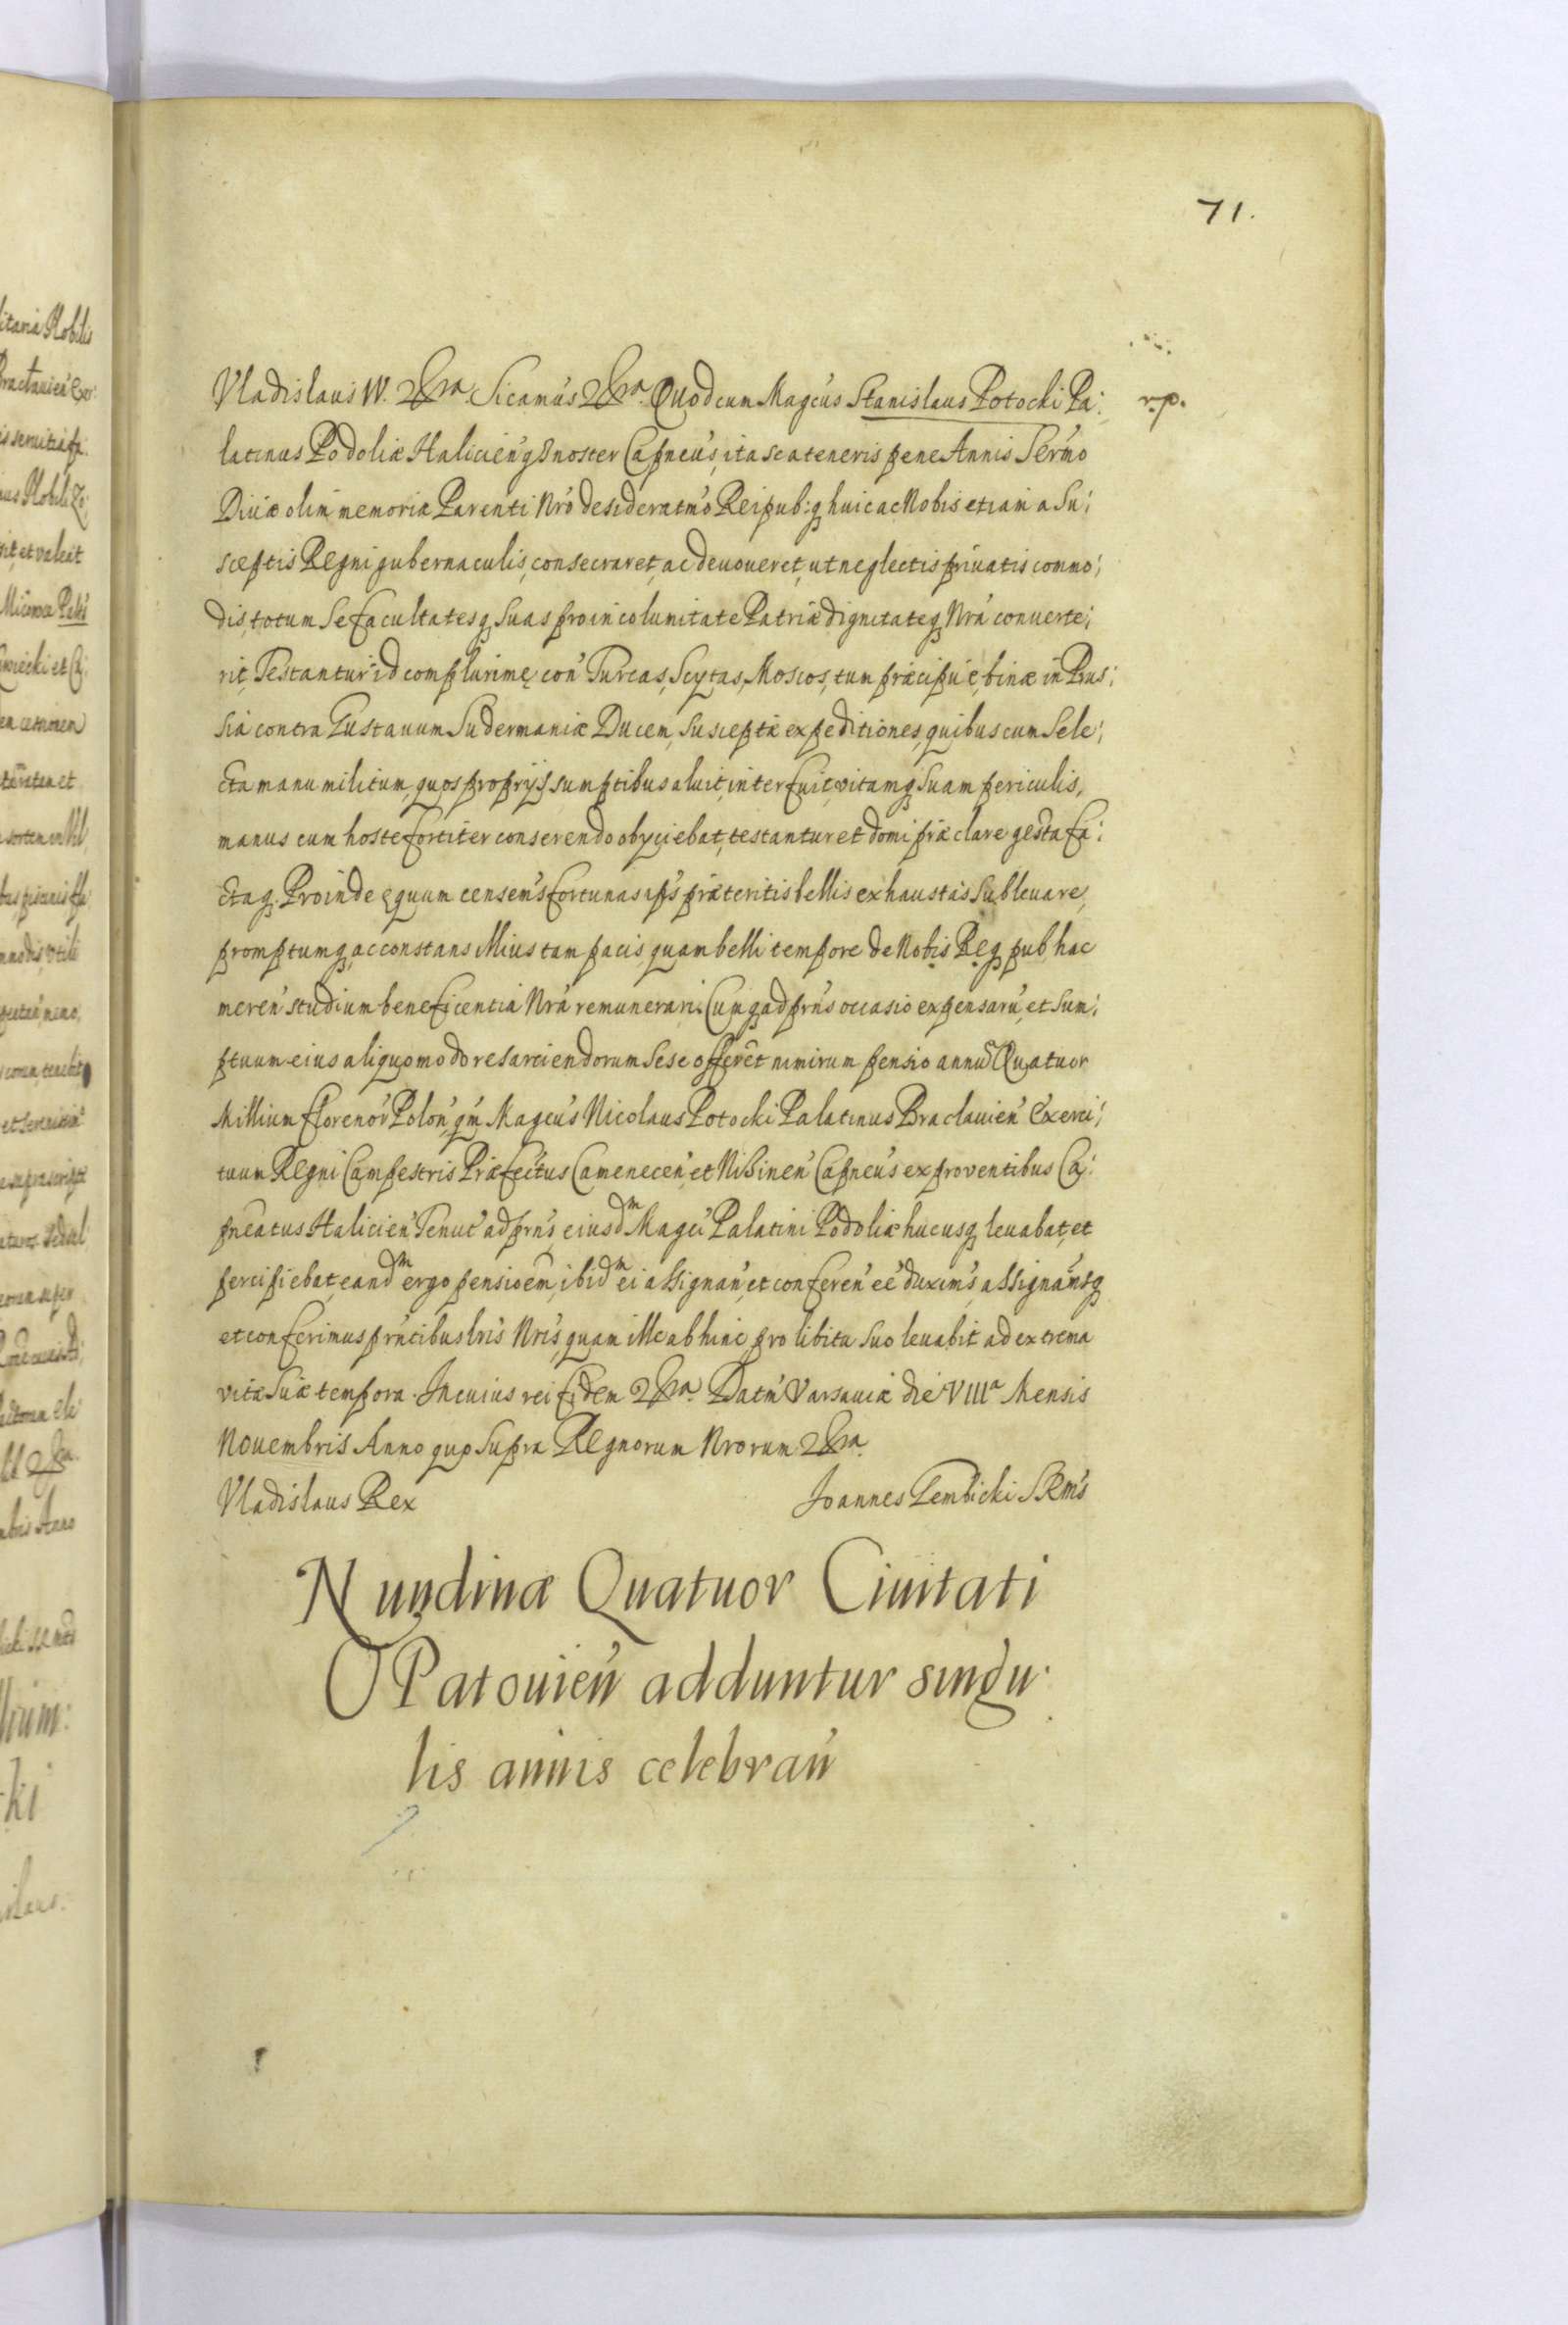 71.
Vladislaus IV. &ra. Sicamús &ra. Quod cum Magcús Stanislaus Potocki Pa: r.p.
latinus Podoliæ Halicień q3 noster Capneús, ita se a teneris pene Annis Sermo
Diuæ olim memoriæ Parenti Nró desideratmo Reipub: q3 huic ac Nobis etiam a Su:
sceptis Regni gubernaculis, consecraret, ac deuoueret, ut neglectis priuatis commo:
dis, totum Se facultatesq3 Suas pro incolumitate Patriæ dignitateq3 Nrá conuerte:
rit, Testantur id complurimę con' Turcas, Scytas, Moscos, tum præcipuè, binæ in Prus:
sia contra Gustauum Sudermaniæ Ducem, susceptæ expeditiones, quibus cum Sele:
cta manu militum, quos proprijs sumptibus aluit, interfuit, vitamq3 Suam periculis,
manus cum hoste fortiter conserendo obyciebat, testantur et domi præclare gesta fa:
ctaq3. Proinde ęquum censems fortunas ips præteritis bellis exhaustas Subleuare,
promptumq3, ac constans illius tam pacis, quam belli tempore de Nobis Req3 pub hac
meren' studium beneficentia Nrá remunerari. Cumq3 ad prns occasio expensarú, et Sum:
ptuum eius aliquo modo resarciendorum sese offeret nimirum pensio annua Quatuor
Millium florenor' Polon', qm Magcús Nicolaus Potocki Palatinus Braclauien' Exerci:
tuum Regni Campestris Præfectus Camenecen' et Nisinen' Capneús ex proventibus Ca:
pneatus Halicien' Tenut' ad prns, eiusdm Magci Palatini Podoliæ hucusq3 leuabat, et
percipiebat, eandm ergo pensioem, ibidm ei assignan', et conferen' eé duxims, assignamsq3
et conferimus prntibus lris Nris, quam ille abhinc pro libitu suo leuabit ad extrema
vitæ suæ tempora. In cuius rei fidem &ra. Datm Varsauiæ die VIIIa Mensis
Nouembris Anno quo supra Regnorum Nrorum &ra.
Vladislaus Rex Joannes Gembicki SRms
Nundinæ Quatuor Ciuitati
OPatouień adduntur singu:
lis annis celebrań